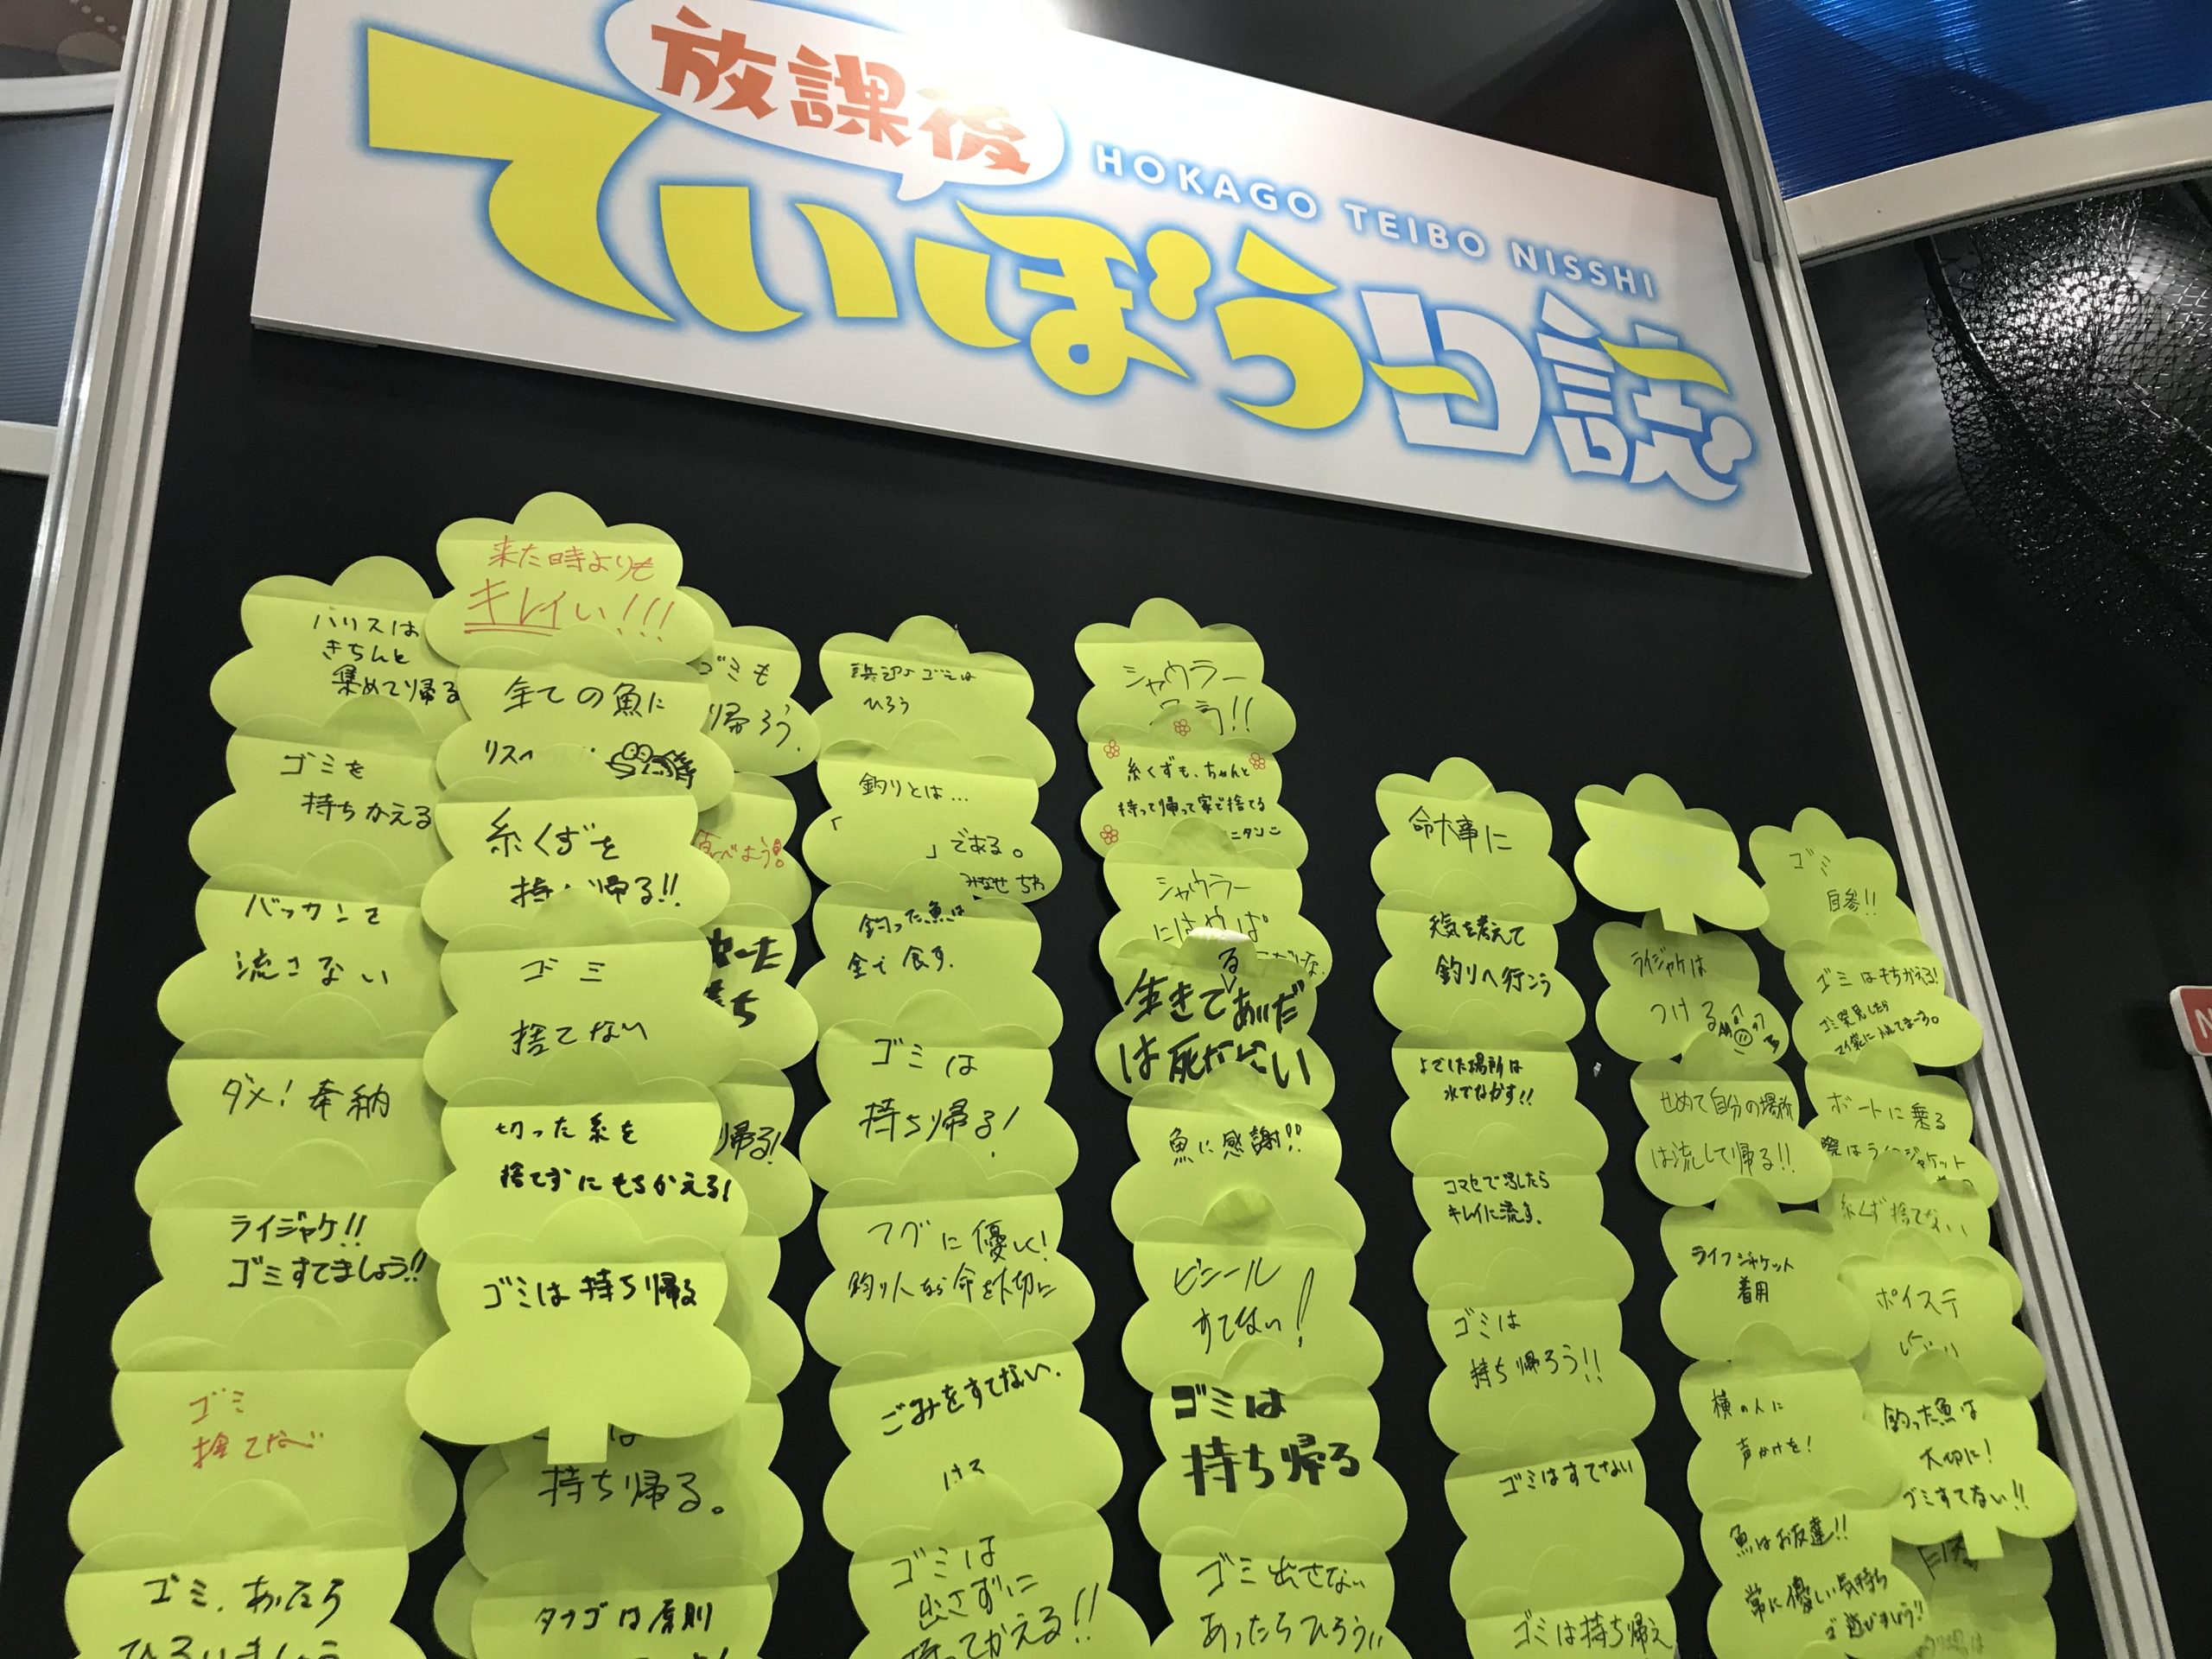 放課後
HOKAGO TEIBO NISSHI
ていぼう日誌
ハリスは
きちんと
集めて帰る
ゴミを
持ちかえる
バッカンで
流さない
ダメ!奉納
ライジャケ!!
ゴミすてましょう!!
ゴミ
捨てない
ゴミ、あったら
ひろいましょう
来た時よりも
キレイい!!!
全ての魚に
リスペ
糸くずを
持 帰る!!
ゴミ
捨てない
切った糸を
捨てずにもちかえる!
ゴミは持ち帰る
持ち帰る。
は原則
ゴミも
帰ろう。
食べよう!
帰る!
ゴミは
ひろう
釣りとは…
「 」である。
みなせ
釣った魚は
全て食す.
ゴミは
持ち帰る!
フグに優しく!
釣り人なら命を大切に
ごみをすてない.
ゴミは
出さずに
持ってかえる!!
シャウラー
糸くずも、ちゃんと
持って帰って家で捨てる
シャウラー
にはやっぱ
生きてるあいだ
は死なない
魚に感謝!!
ビニール
すてない!
ゴミは
持ち帰る
ゴミ出さない
あったらひろう
命大事に
天気を考えて
釣りへ行こう
よごした場所は
水でながす!!
コマセで汚したら
キレイに流す.
ゴミは
持ち帰ろう!!
ゴミはすてない
ゴミは持ち帰え
ライジャケは
つける
せめて自分の場所
は流して帰る!!
ライフジャケット
着用
横の人に
声かけを!
魚はお友達!!
常に優しい気持ち
で遊びましょう!!
ゴミ
ゴミはもちかえる!
ゴミ発見したら
マイ袋に入れてまーす。
ボートに乗る
際はライフジャケット
糸くず捨てない
ポイステ
釣った魚は
大切に!
ゴミすてない!!